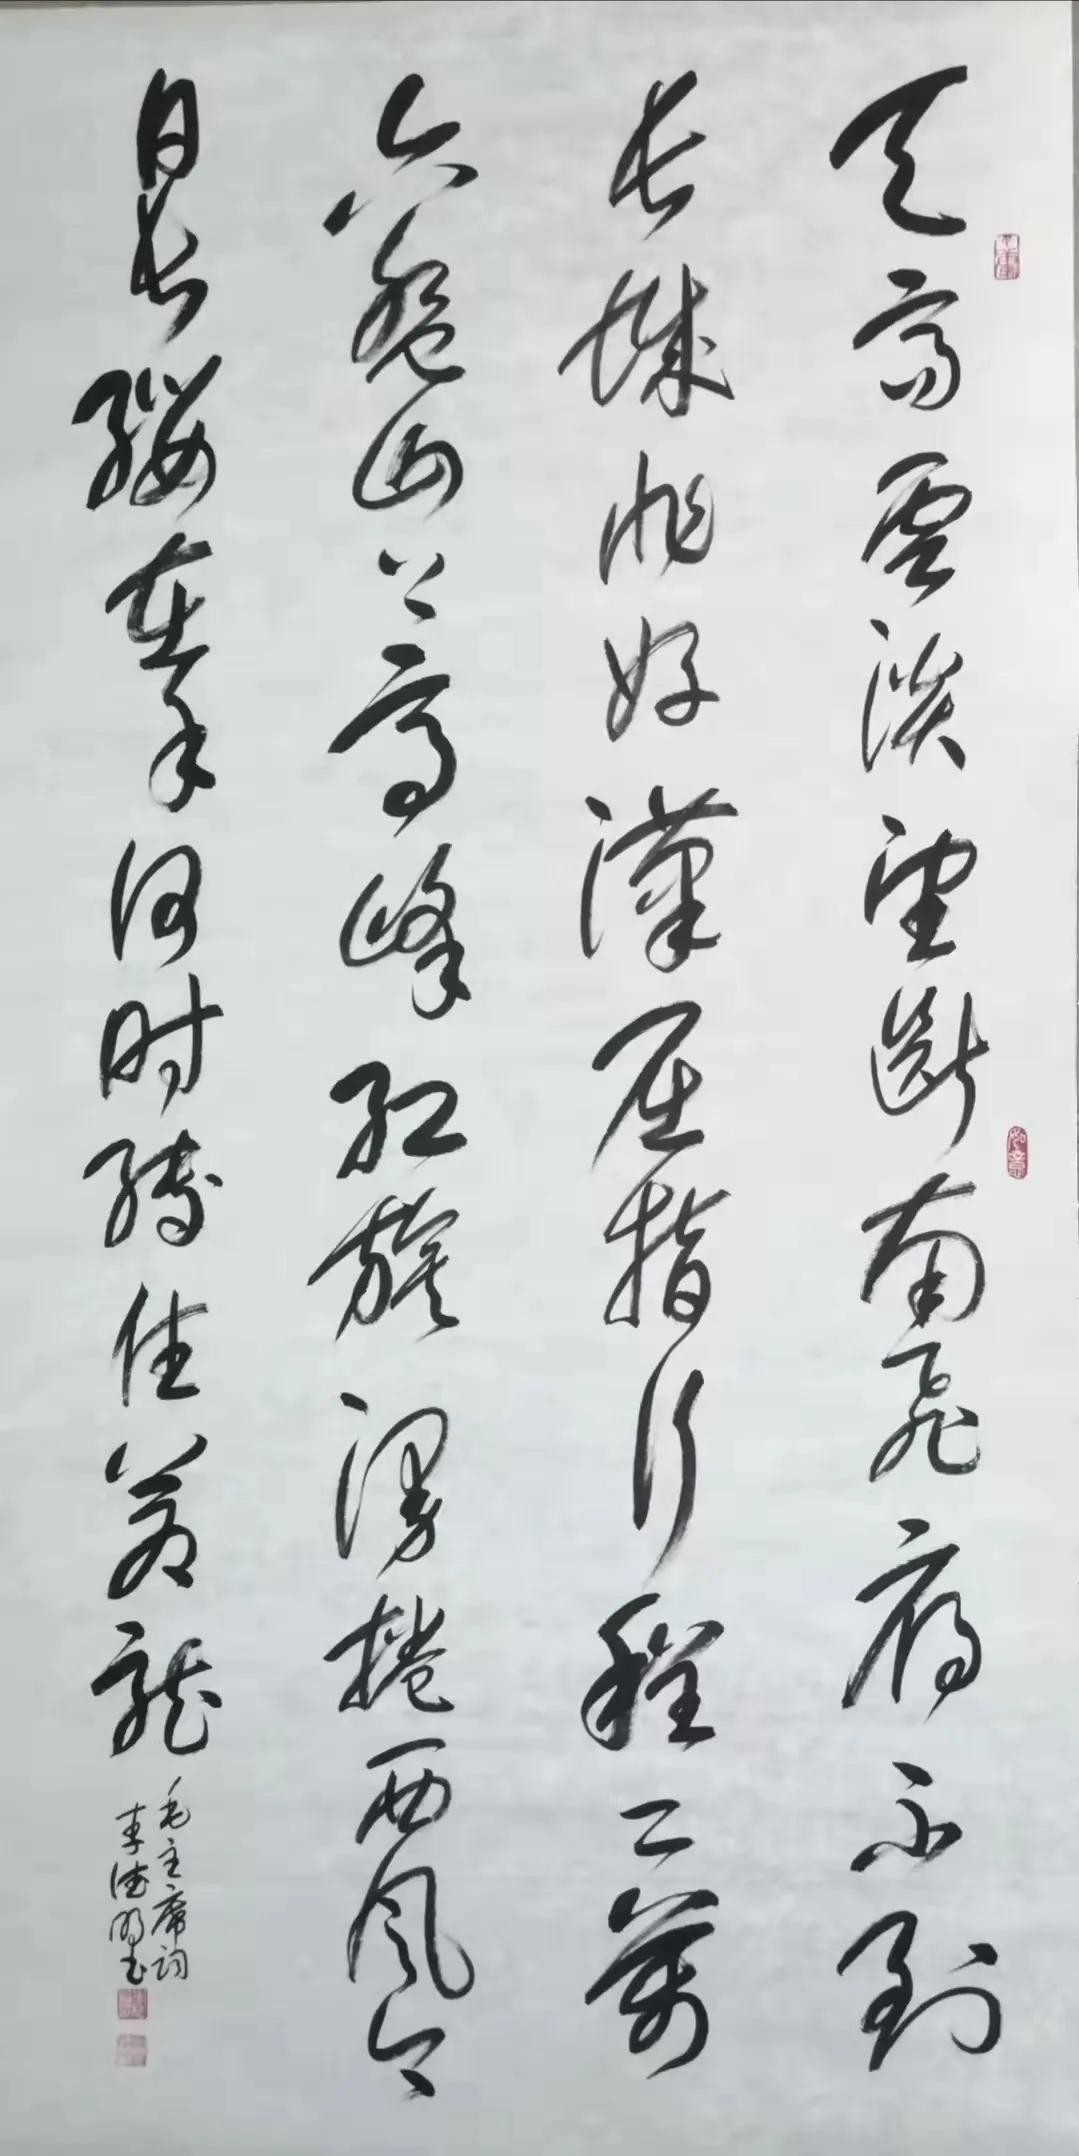 天高雲淡望斷南飛雁不到
長城非好漢屈指行程二萬
六盤山上高峰紅旗漫捲西風今
日長纓在手何时縛住蒼龍
毛主席詞
李德明书
如意